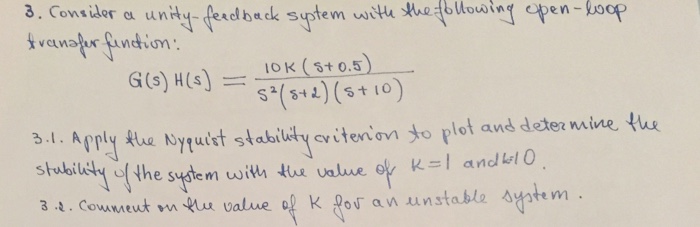 3. Consider a unity-feedback system with the following open-loop
transfer function:
G(s) H(s) = 10K (s+0.5) / s²(s+2)(s+10)
3.1. Apply the Nyquist stability criterion to plot and determine the
stability of the system with the value of K=1 and k10.
3.2. Comment on the value of K for an unstable system.